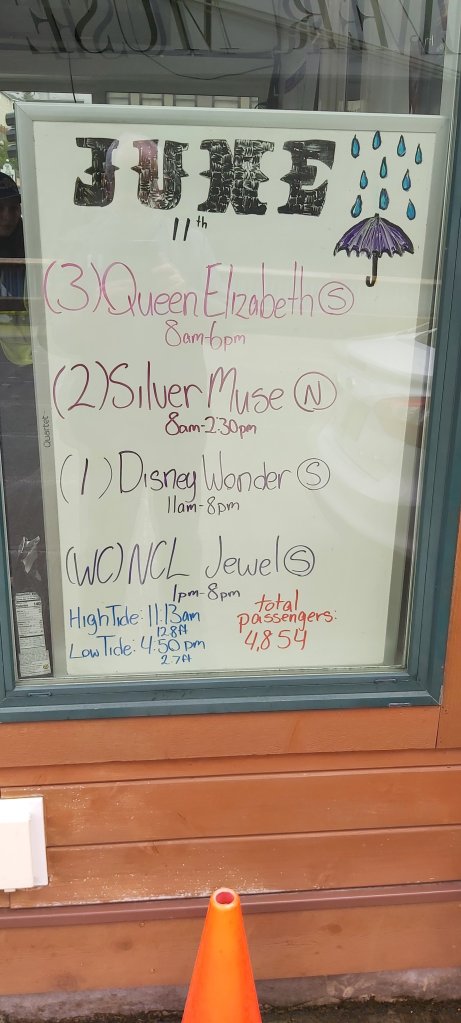 JUNE
11th
(3) Queen Elizabeth (S)
8am-6pm
(2) Silver Muse (N)
8am-2:30pm
(1) Disney Wonder (S)
11am-8pm
(WC) NCL Jewel (S)
1pm-8pm
High Tide: 11:13am
12.8ft
Low Tide: 4:50 pm
2.7ft
total
passengers:
4,854
Quartet